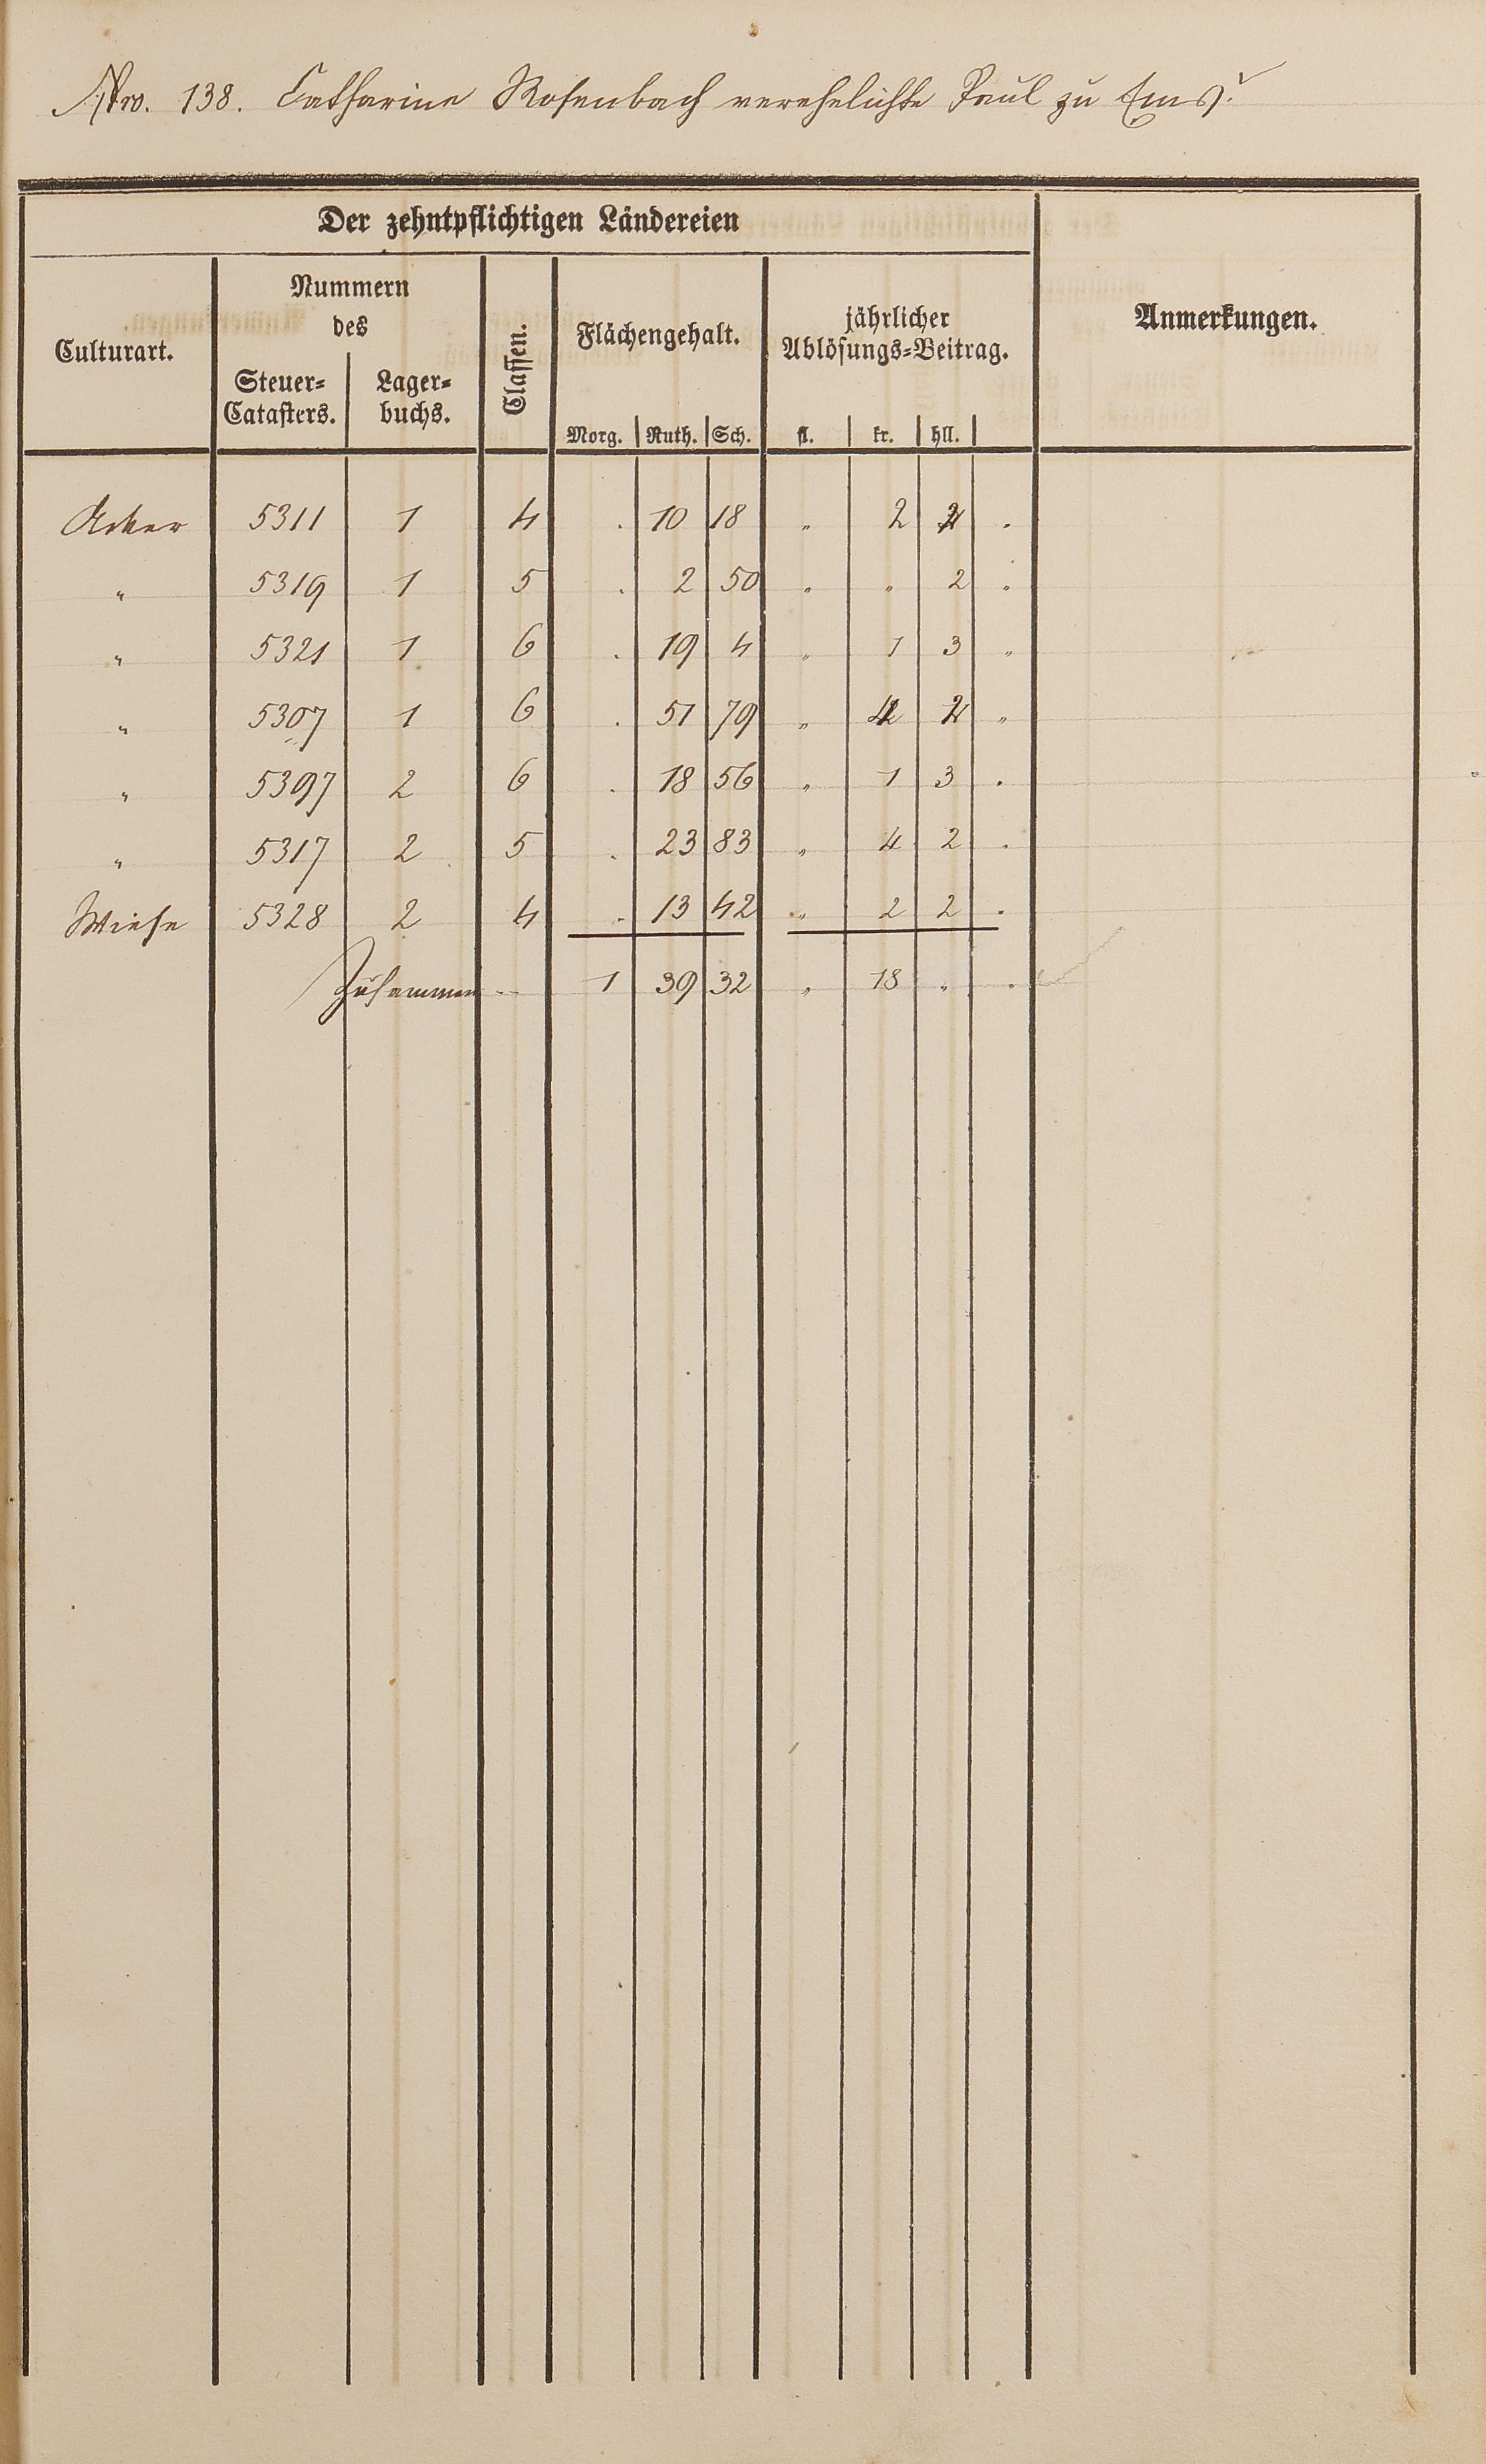 Nro. 138. Catharine Rosenbach verehelichte Paul zu Ems.
Der zehntpflichtigen Ländereien
Culturart. Nummern des Steuer-Catasters. Lagerbuchs. Classen. Flächengehalt. Morg. Ruth. Sch. jährlicher Ablösungs-Beitrag. fl. kr. hll. Anmerkungen.
Acker 5311 1 4 . 10 18 „ 2 2 .
„ 5319 1 5 . 2 50 „ „ 2 .
„ 5321 1 6 . 19 4 „ 1 3 „
„ 5307 1 6 . 51 79 „ 4 2 „
„ 5397 2 6 . 18 56 „ 1 3 .
„ 5317 2 5 . 23 83 „ 4 2 .
Wiese 5328 2 4 . 13 42 „ 2 2 .
Zusammen -- 1 39 32 „ 18 „ .